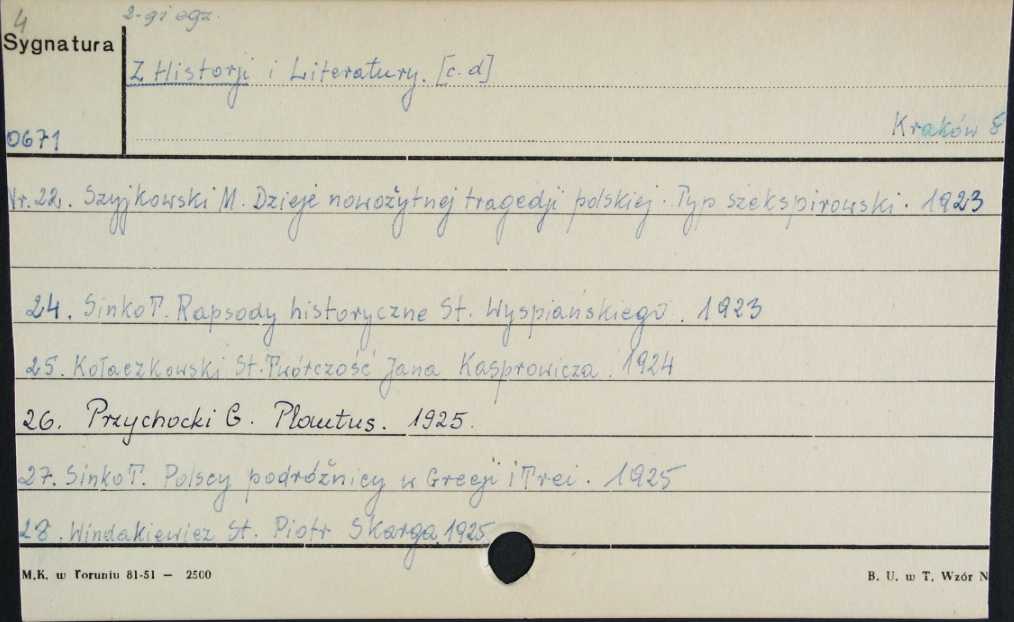 4
2-gi egz.
Sygnatura
Z Historji i Literatury. [c.d]
Kraków 8
0671
Nr. 22. Szyjkowski M. Dzieje nowożytnej tragedji polskiej. Typ szekspirowski. 1923
24. Sinko T. Rapsody historyczne St. Wyspiańskiego. 1923
25. Kołaczkowski St. Twórczość Jana Kasprowicza. 1924
26. Przychocki G. Plautus. 1925.
27. Sinko T. Polscy podróżnicy w Grecji i Troi. 1925
28. Windakiewicz St. Piotr Skarga. 1925
M.K. w Toruniu 81-51 — 2500
B. U. w T. Wzór N